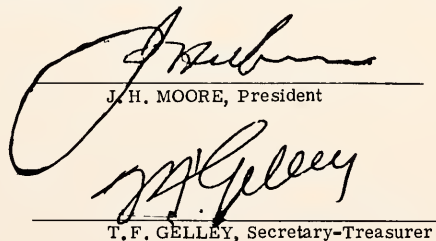 J. H. MOORE, President
T. F. Gelley
T. F. GELLEY, Secretary-Treasurer